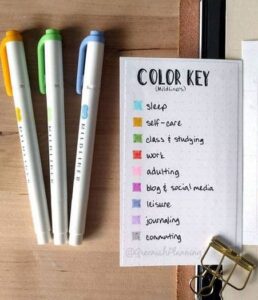 COLOR KEY
(Mildliners)
sleep
self-care
class & studying
work
adulting
blog & social media
leisure
journaling
commuting
MILDLINER
MILDLINER